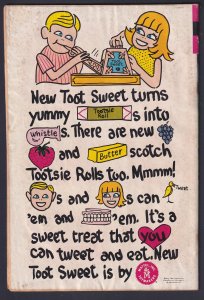 New Toot Sweet turns
yummy Tootsie Roll s into
Whistle s. There are new
and Butter scotch
Tootsie Rolls too. Mmmm!
s and s can Twist
'em and 'em. It's a
sweet treat that you
can tweet and eat. New
Toot Sweet is by